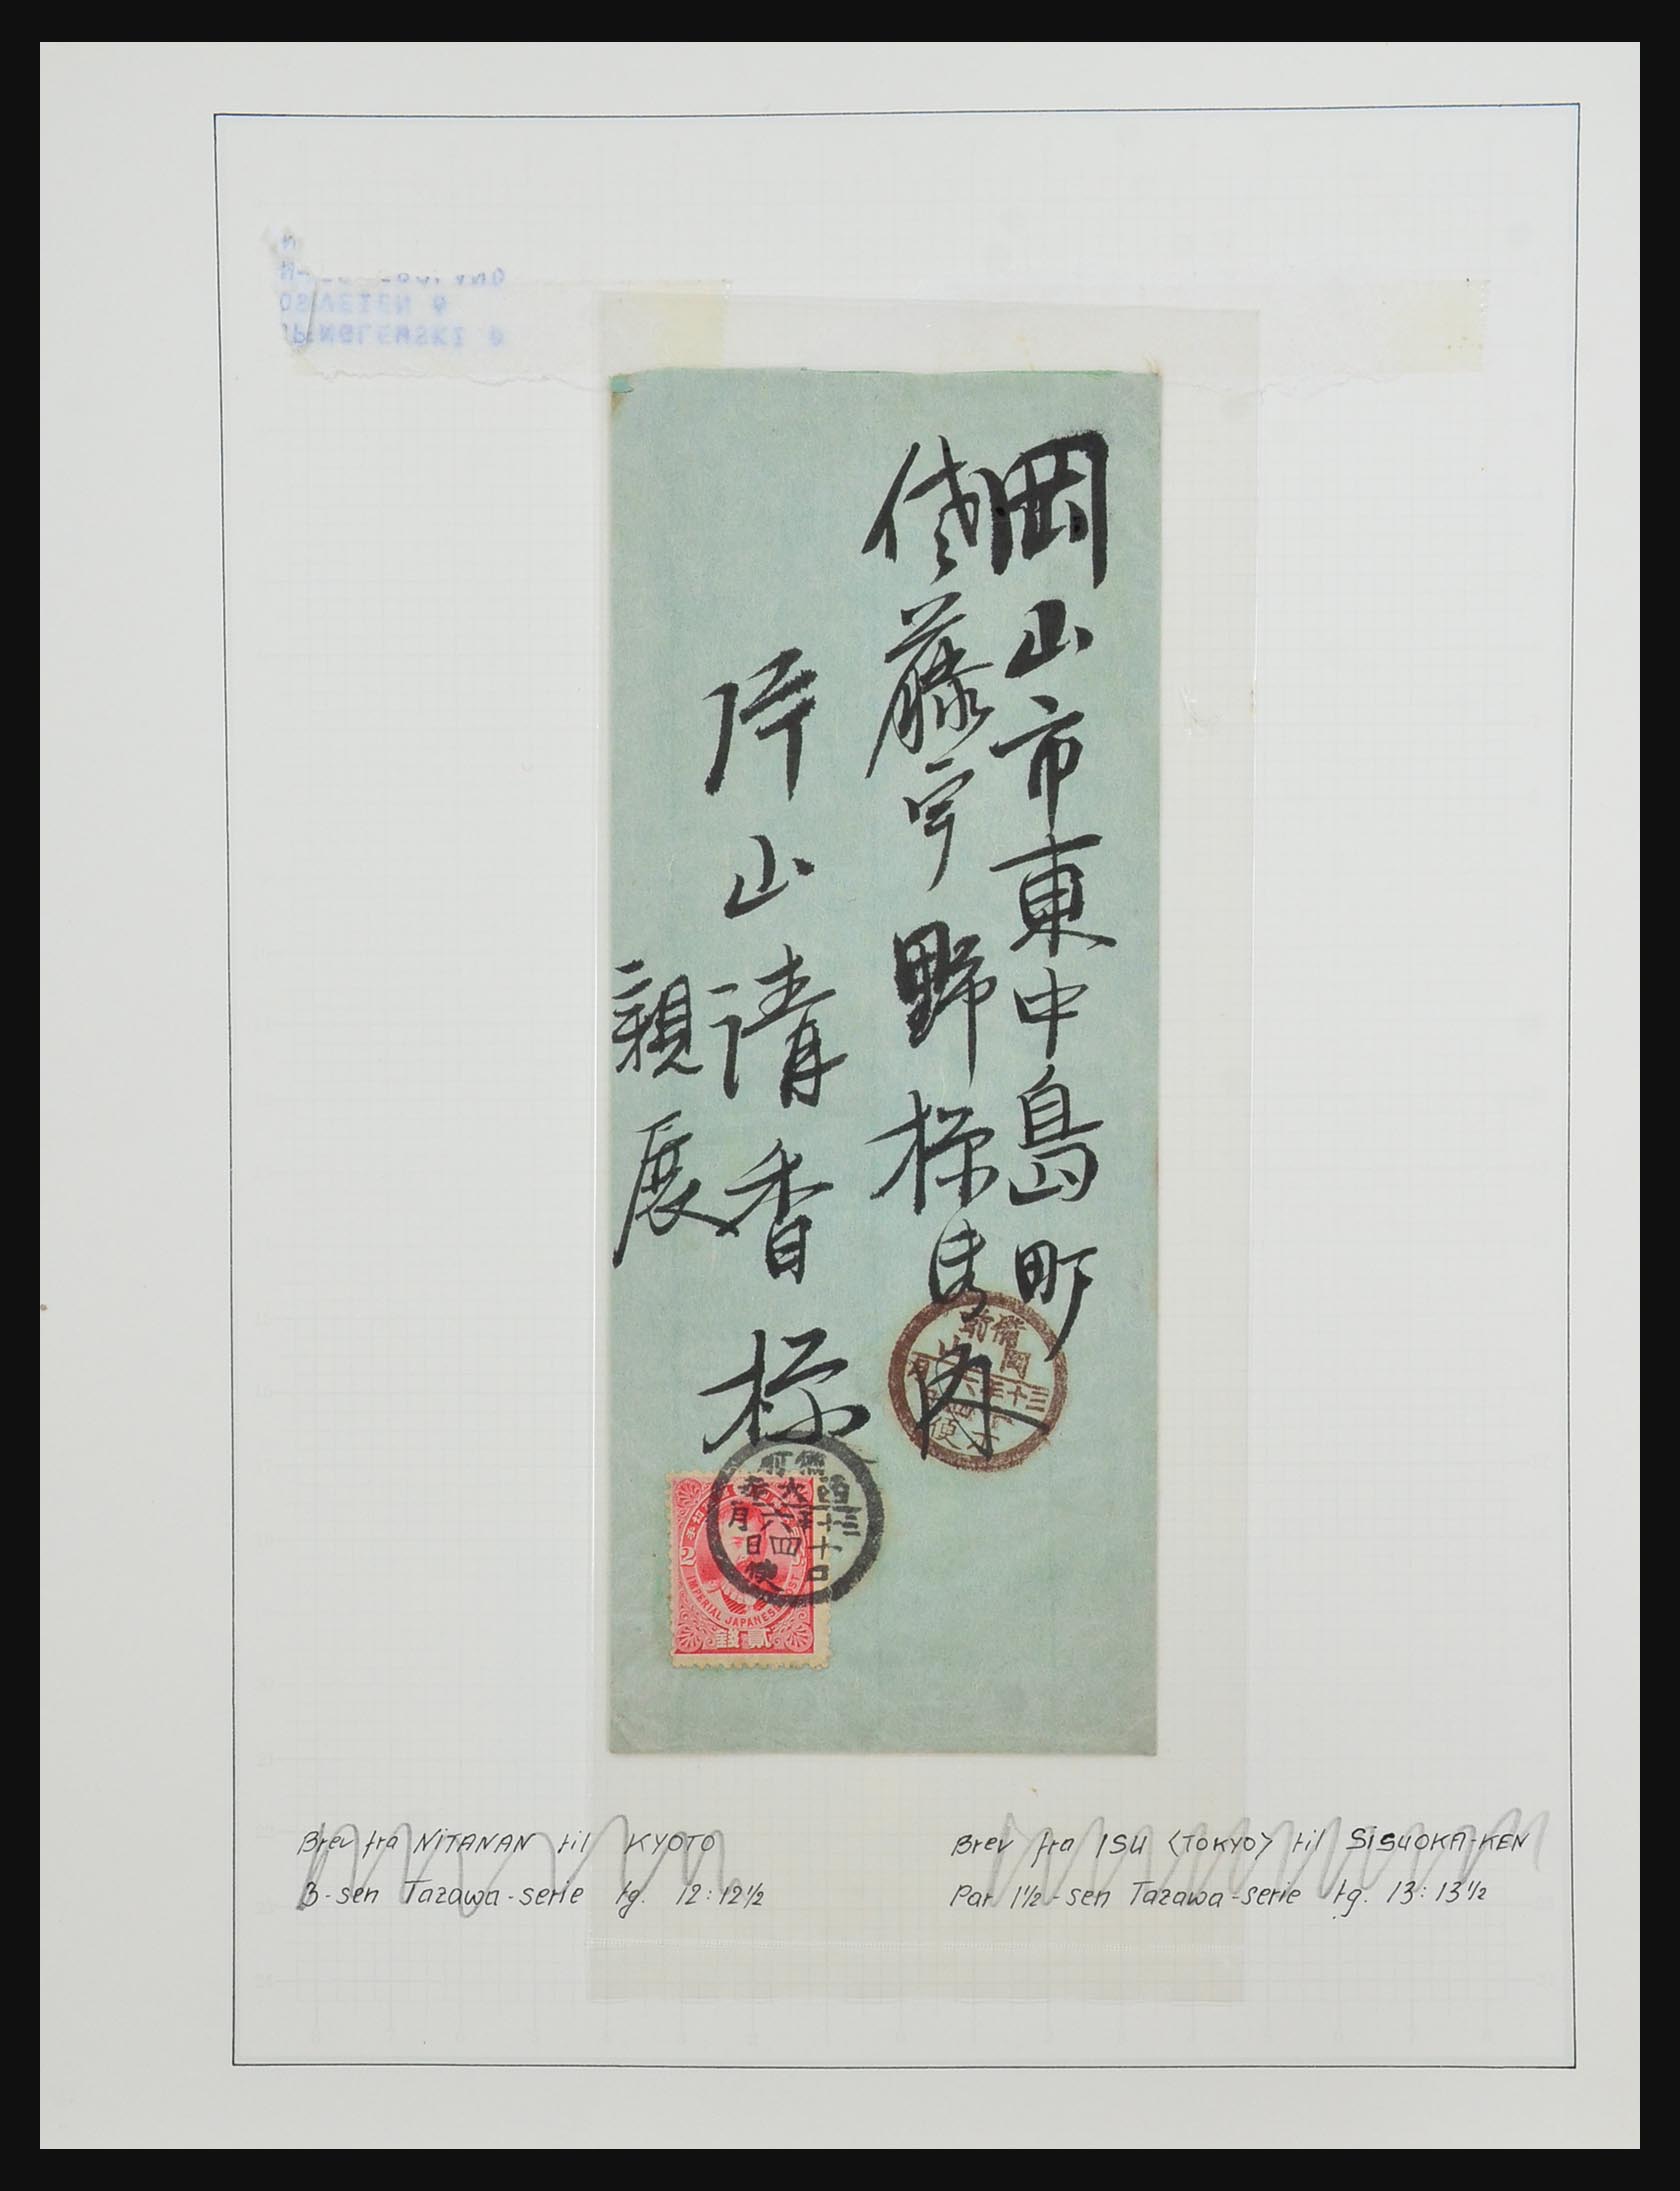 岡山市東中島町
藤宇野様内
片山清香様
親展
備前
岡山
三十年六月
便
三十年六月
十四日
便
2
IMPERIAL JAPANESE POST
貳錢
OSVEIEN
Brev fra NITANAN til KYOTO
3-sen Tazawa-serie tg. 12:12½
Brev fra ISU (TOKYO) til SISUOKA-KEN
Par 1½-sen Tazawa-serie tg. 13:13½